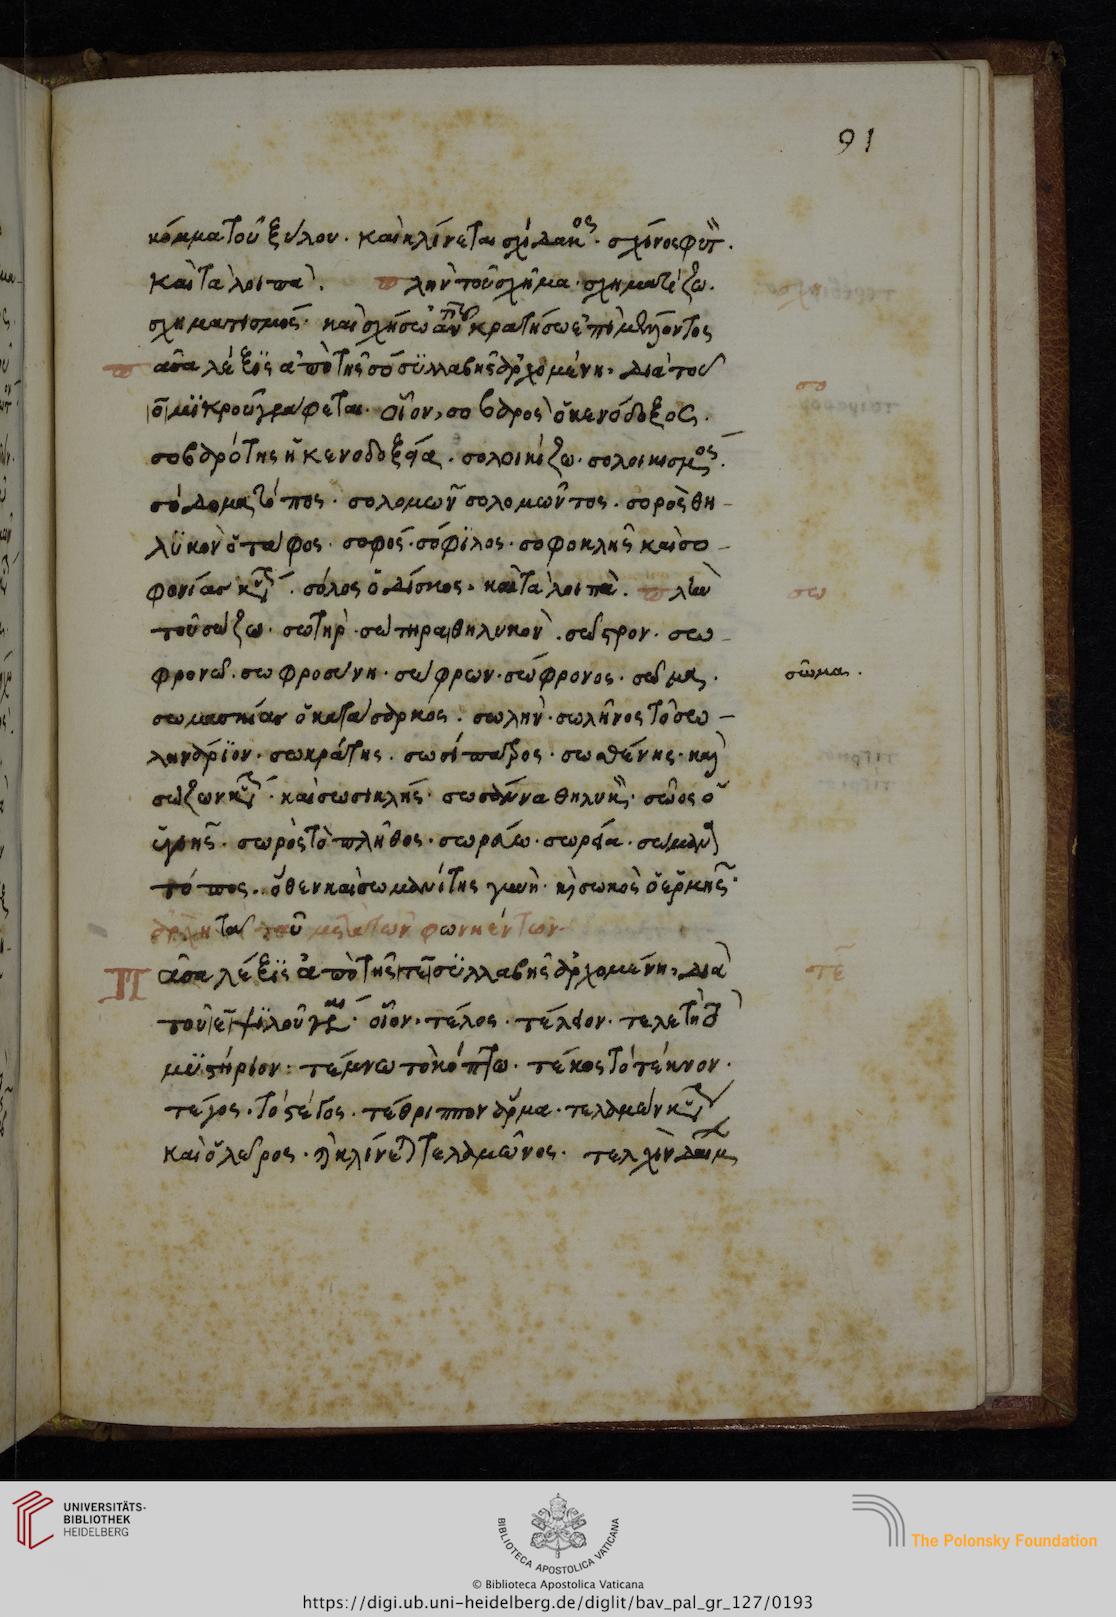 91
κόμμα τοῦ ξύλου. καὶ κλίνεται σχίδακος. σχίνος φυτ.
καὶ τὰ λοιπά. πλὴν τοῦ σχῆμα. σχηματίζω.
σχηματισμός. καὶ σχήσω ἀν κρατήσω ἐπὶ μέλλοντος
πᾶσα λέξϊς ἀπὸ τῆς σο συλλαβῆς ἀρχομένη, διὰ τοῦ
σο
ο μϊκροῦ γράφεται. οἷον, σοβαρὸς ὁ κενόδοξος.
σοβαρότης ἡ κενοδοξία. σολοικίζω. σολοικισμός.
σόδομα τόπος. σολομῶν σολομῶντος. σορὸς θη-
λϋκὸν ὁ τάφος. σοφός. σόφϊλος. σοφοκλῆς καὶ σο-
φονίας κύ. σόλος ὁ δίσκος. καὶ τὰ λοιπά. πλὴν
σω
τοῦ σώζω. σωτήρ. σώτηρα θηλυκόν. σῶστρον. σω-
φρονῶ. σωφροσύνη. σώφρων. σώφρονος. σῶμα.
σῶμα.
σωμασκίας ὁ κατὰ σαρκός. σωλήν. σωλῆνος τὸ σω-
ληνάρϊον. σωκράτης. σωσίπατρος. σωσθένης. καὶ
σώζων κύ. καὶ σωσικλῆς. σωσάννα θηλυκ. σῶος ὁ
ὑγιής. σωρὸς τὸ πλῆθος. σωρεύω. σωρεία. σωμὰν
τόπος. ὅθεν καὶ σωμανίτης γυνή. καὶ σωκὸς ὁ ἑρμῆς.
ἀρχὴ τοῦ ταῦ μετὰ τῶν φωνηέντων
Πᾶσα λέξϊς ἀπὸ τῆς τε συλλαβῆς ἀρχομένη, διὰ
τε
τοῦ ε ψϊλοῦ γρ. οἷον. τέλος. τέλειον. τελετὴ
μϋστήριον: τέμνω τὸ κόπτω. τέκος τὸ τέκνον.
τέγος. τὸ στέγος. τέθριππον ἅρμα. τελαμών κύ
καὶ ὁ λῶρος. καὶ κλίνεται τελαμῶνος. τελχὶν δαίμ
UNIVERSITÄTS-
BIBLIOTHEK
HEIDELBERG
BIBLIOTECA APOSTOLICA VATICANA
The Polonsky Foundation
© Biblioteca Apostolica Vaticana
https://digi.ub.uni-heidelberg.de/diglit/bav_pal_gr_127/0193